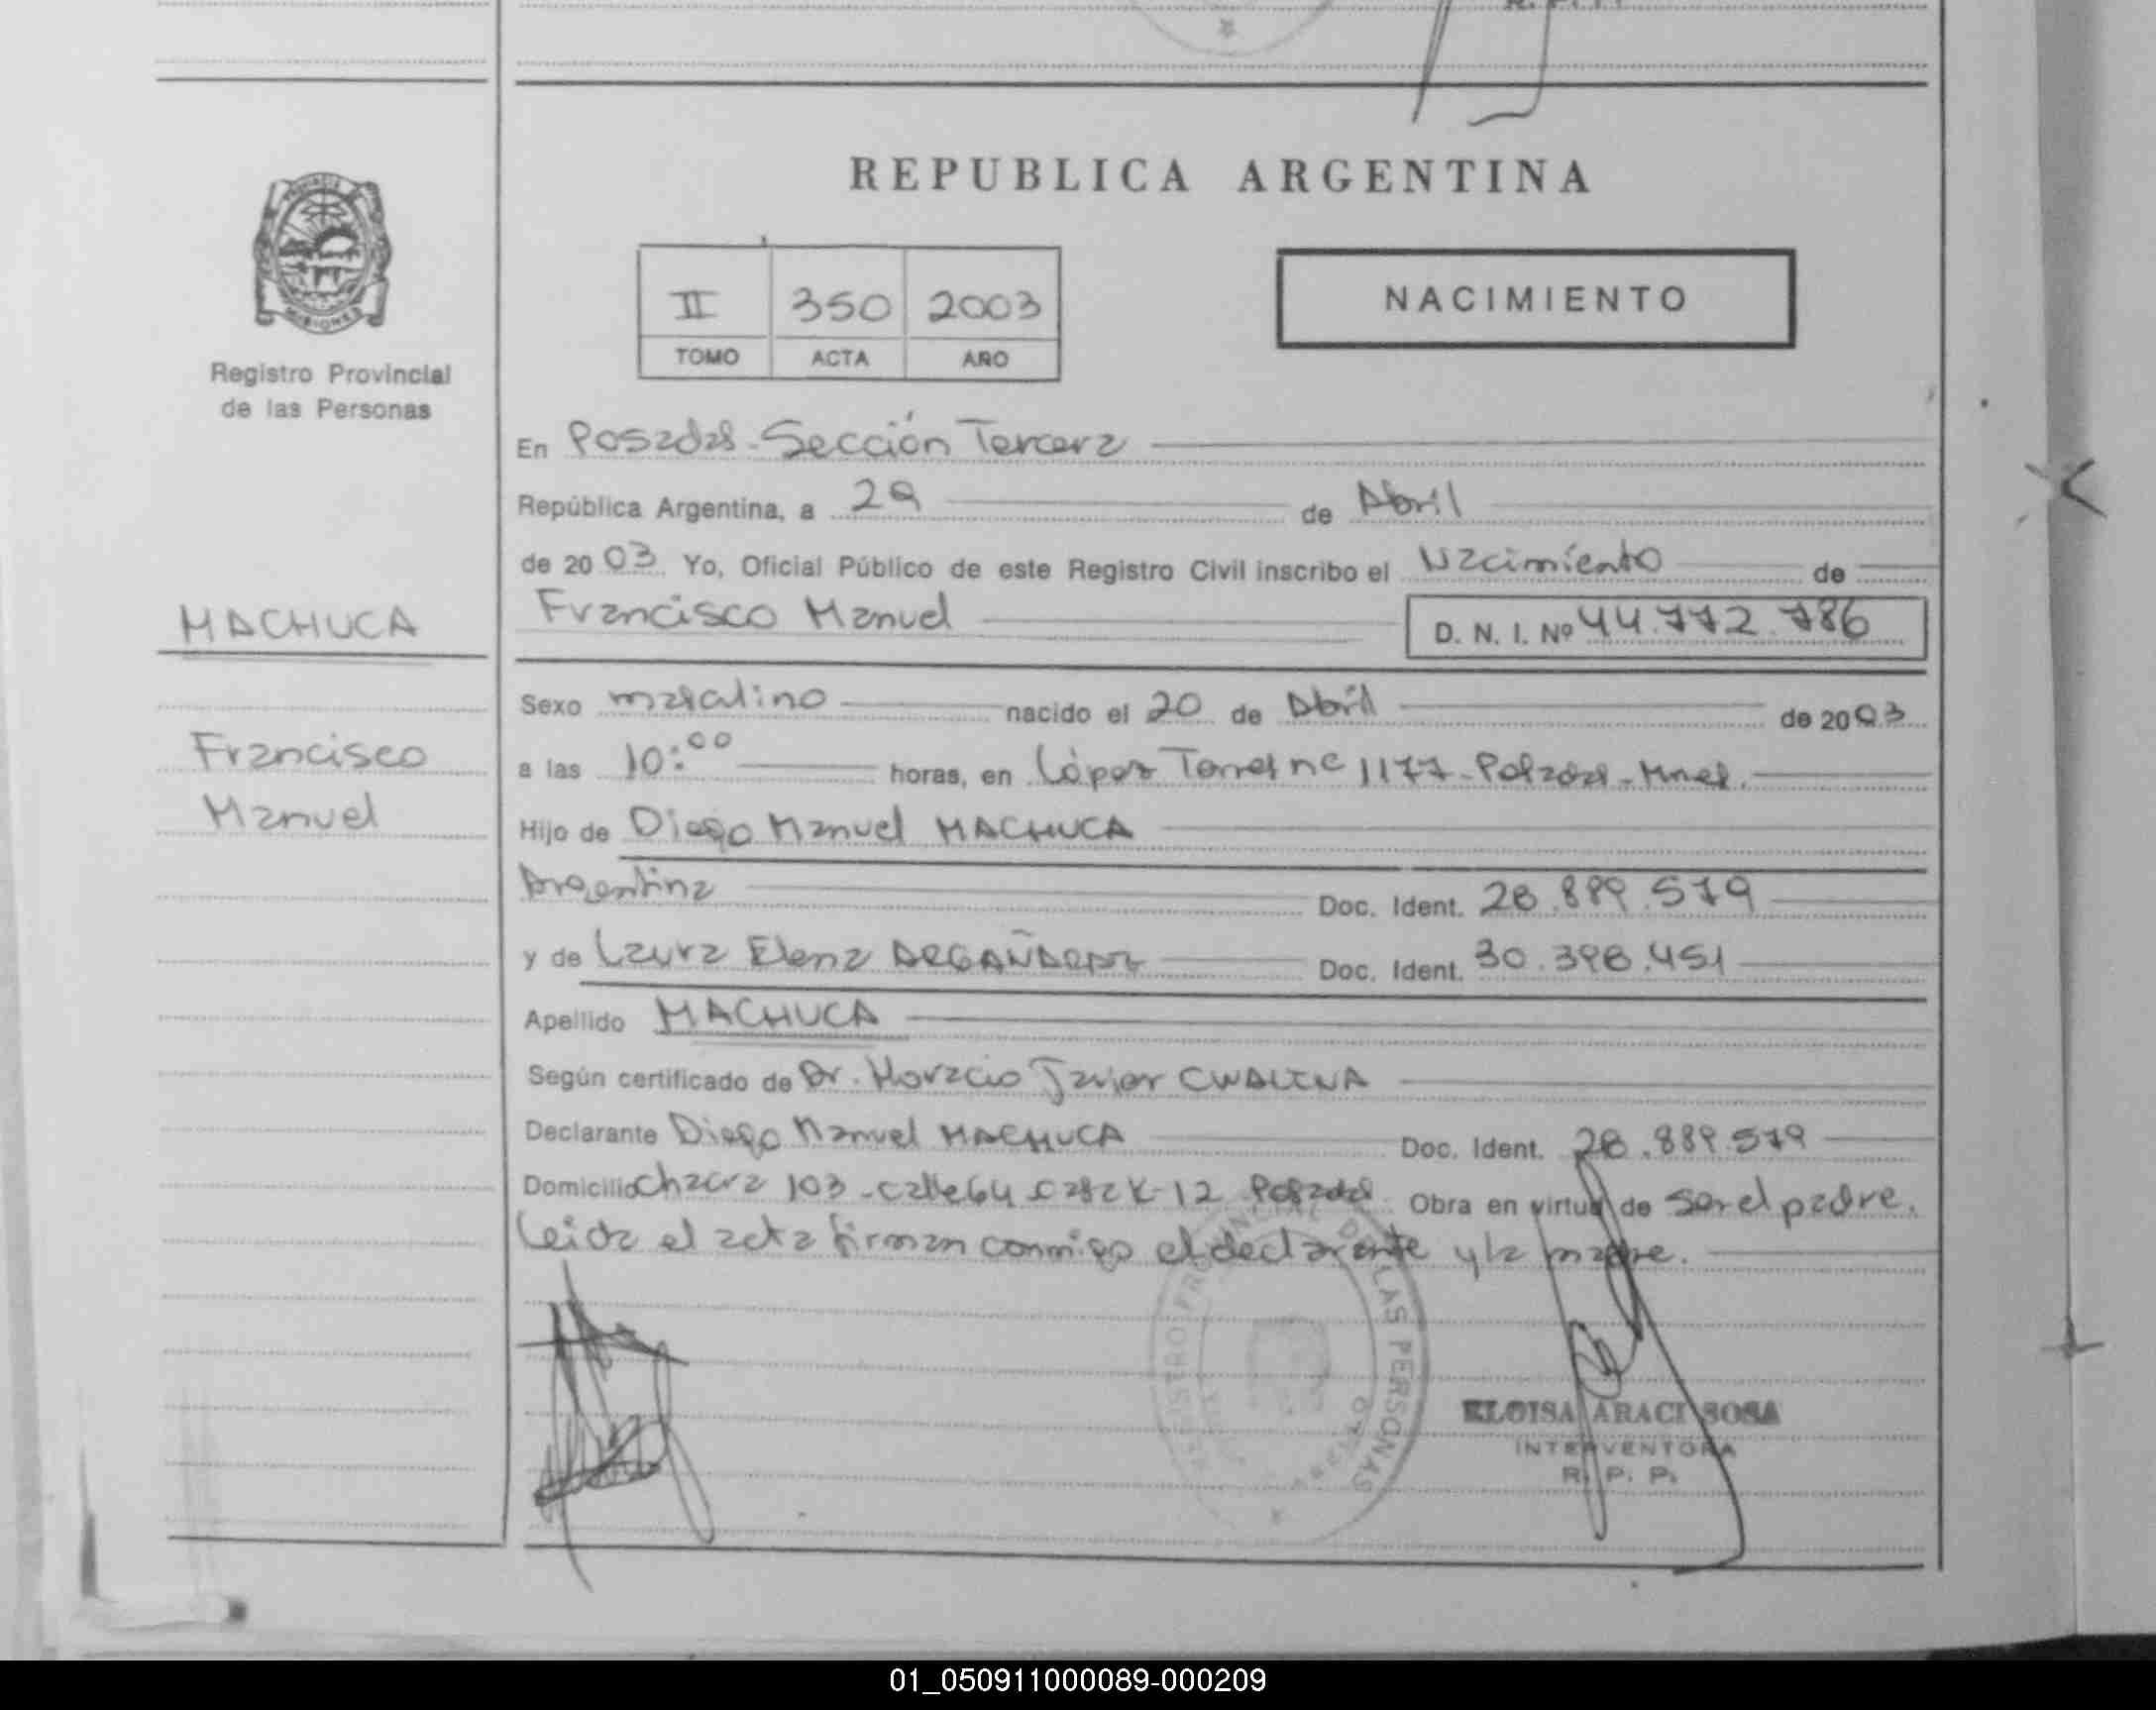 REPUBLICA ARGENTINA
PROVINCIA DE
MISIONES
Registro Provincial
de las Personas
II 350 2003
TOMO ACTA AÑO
NACIMIENTO
En Posadas - Sección Tercera
República Argentina, a 29 de Abril
de 2003 Yo, Oficial Público de este Registro Civil inscribo el Nacimiento de
MACHUCA
Francisco Manuel
D. N. I. Nº 44.772.786
Sexo masculino nacido el 20 de Abril de 2003
Francisco
Manuel
a las 10:00 horas, en López Torres nº 1177 - Posadas - Mnes.
Hijo de Diego Manuel MACHUCA
Argentina Doc. Ident. 28.889.579
y de Laura Elena ARGAÑARAZ Doc. Ident. 30.398.451
Apellido MACHUCA
Según certificado de Dr. Horacio Javier CWALINA
Declarante Diego Manuel MACHUCA Doc. Ident. 28.889.579
Domicilio Chacra 103 - calle 64 casa K-12 Posadas Obra en virtud de ser el padre.
Leida el acta firman conmigo el declarante y la madre.
REGISTRO PROVINCIAL DE LAS PERSONAS
ELOISA ARACI SOSA
INTERVENTORA
R. P. P.
01_050911000089-000209